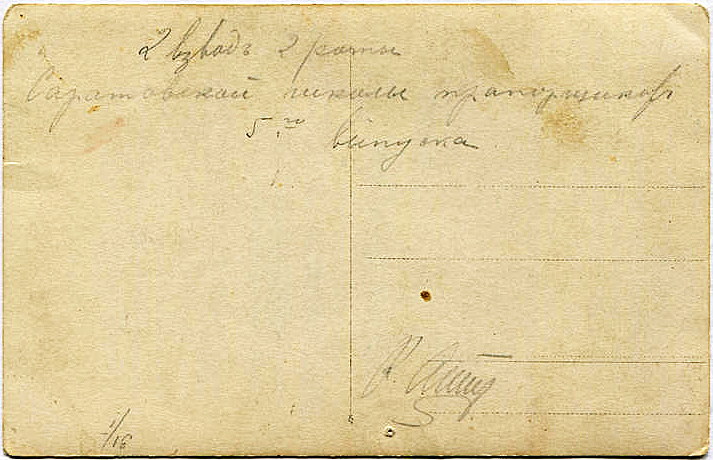 2 взводъ 2 роты
Саратовской школы прапорщиковъ
5го выпуска
1/16